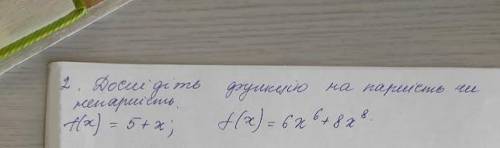 2. Дослідіть функцію на парність чи
непарність.
f(x) = 5+x; f(x) = 6x⁶+8x⁸.